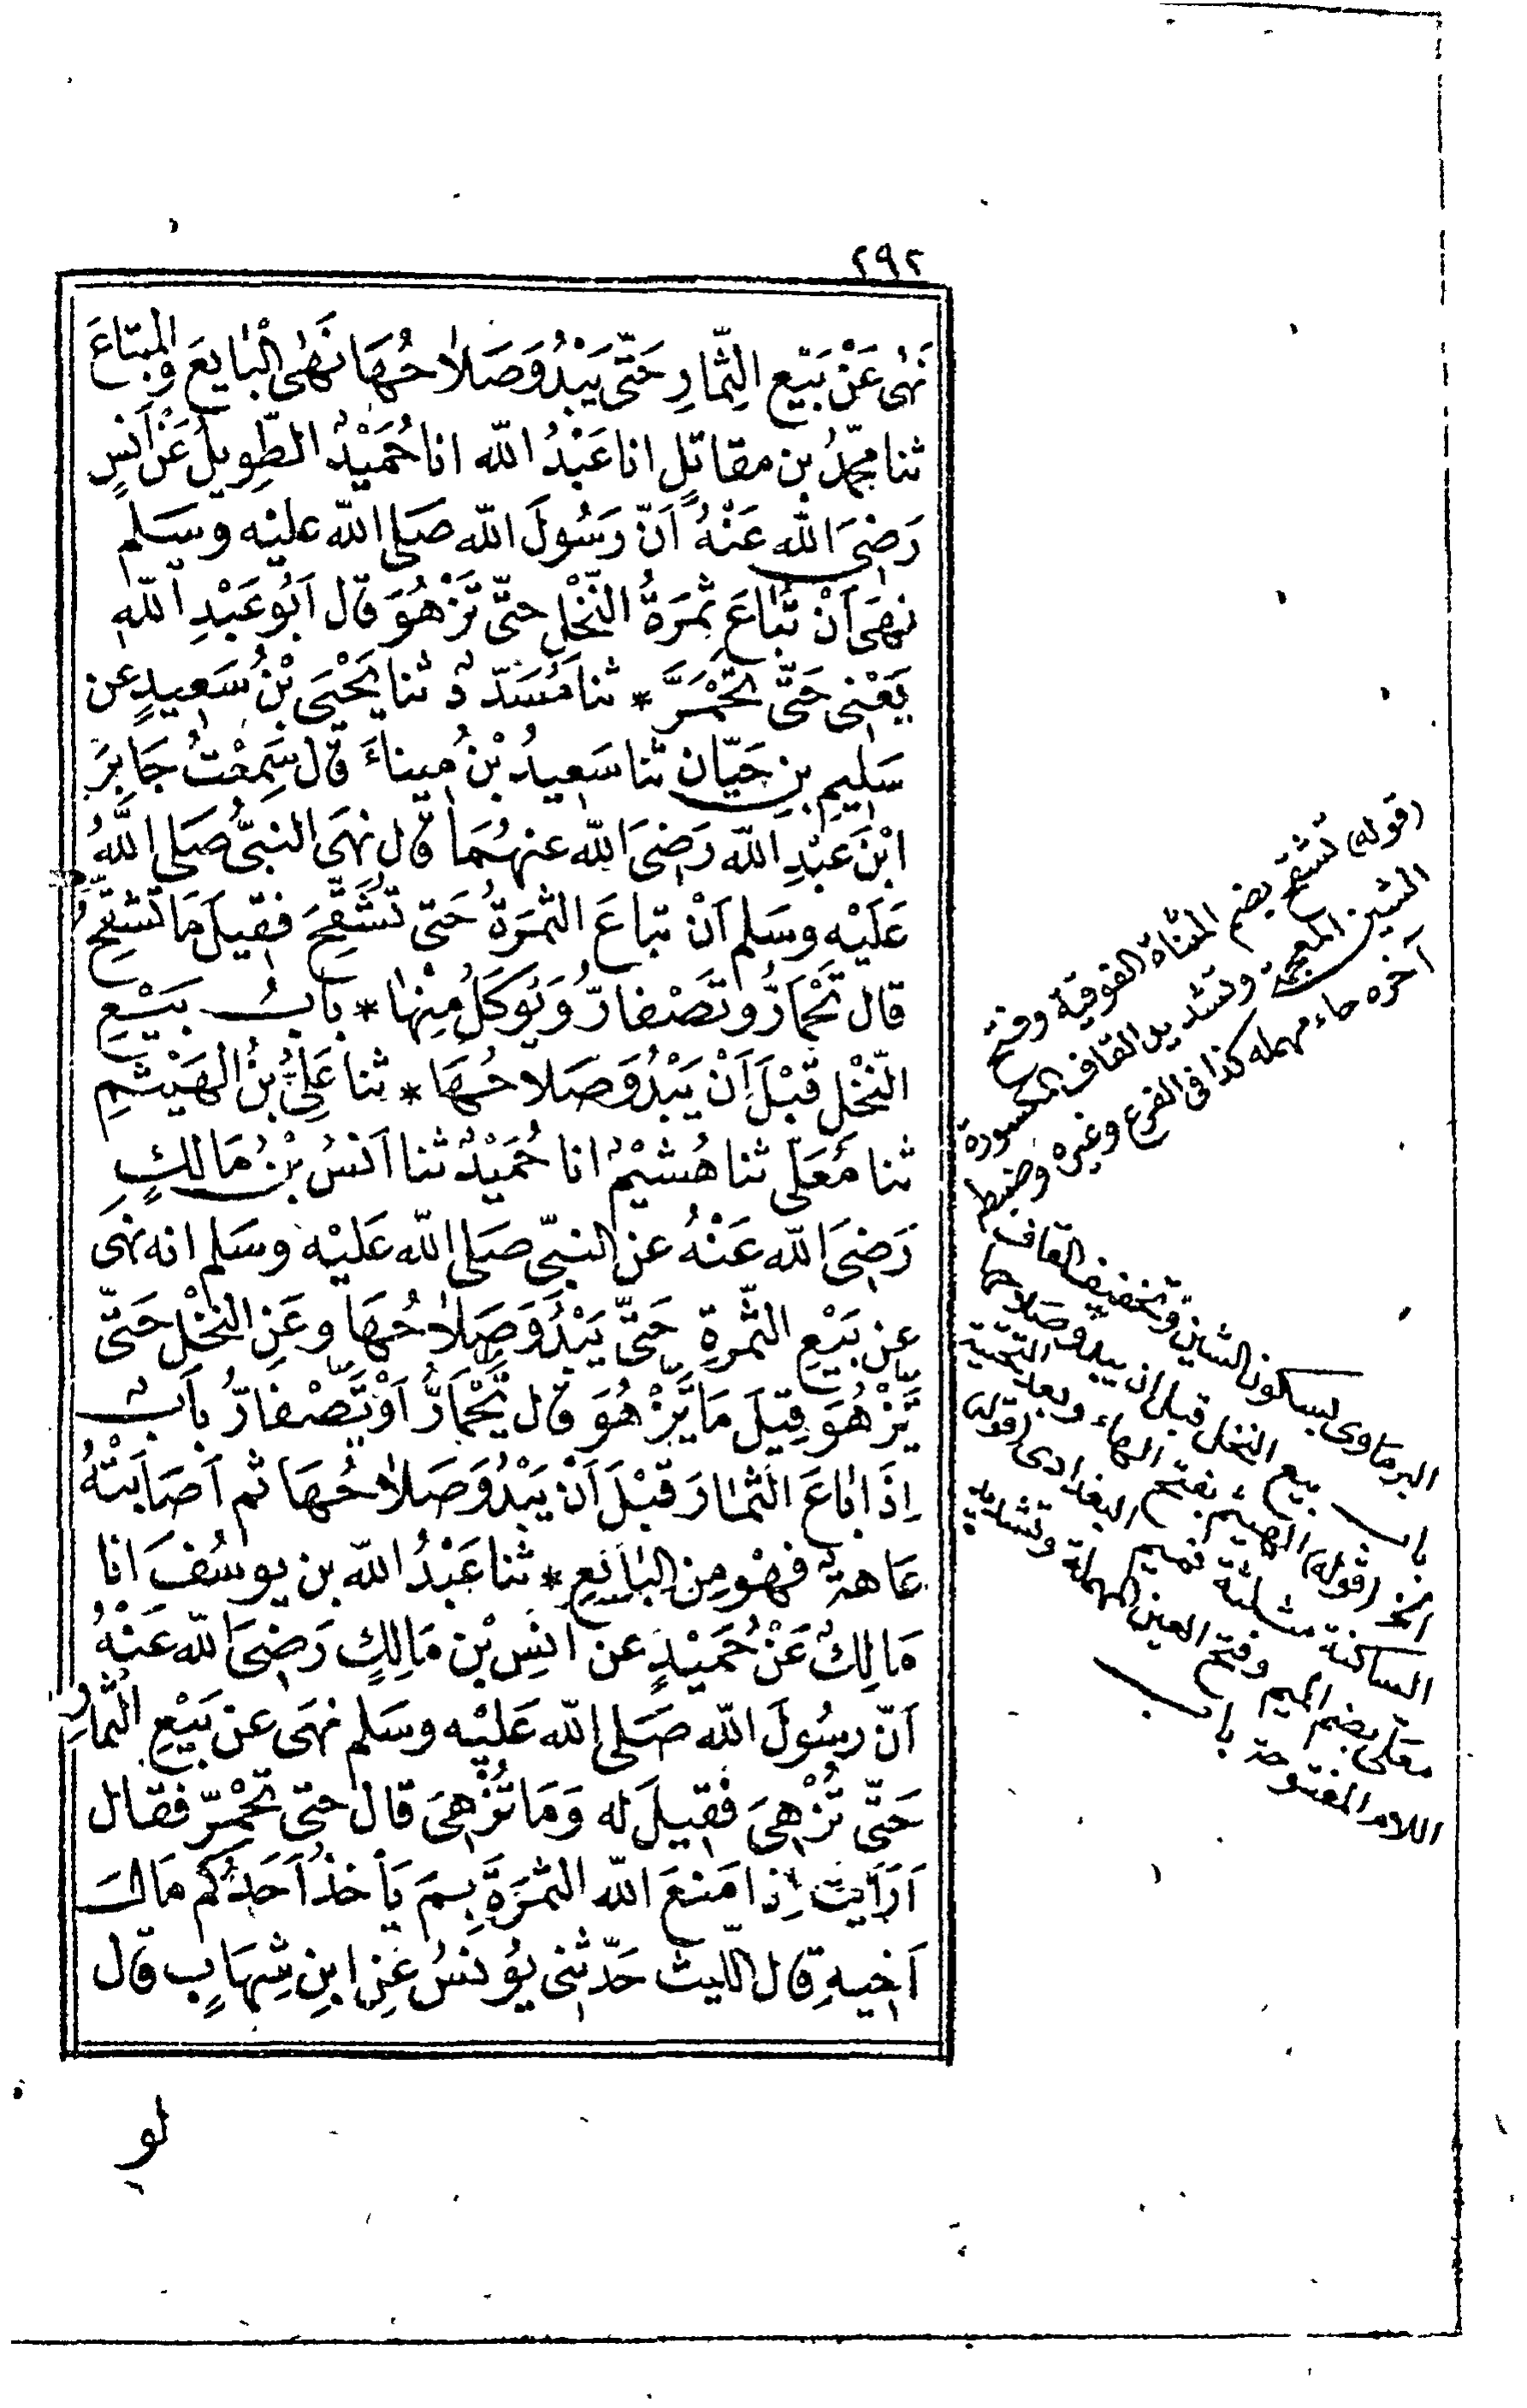 ٢٩٢
نَهٰى عَنْ بَيْعِ الثِّمَارِ حَتّٰى يَبْدُوَ صَلاٰحُهَا نَهَى الْبَايِعَ وَالمبتَاعَ
ثنا محمّدُ بن مقاتلٍ انا عَبْدُ الله انا حُمَيْدٌ الطّوِيلُ عَنْ اَنَسٍ
رَضِىَ الله عَنْهُ اَنّ رَسُولَ الله صَلى الله عليْه وسَلم
نهَى اَنْ تُبَاعَ ثمَرَةُ النّخْلِ حتّى تَزْهُوَ قال اَبُو عَبْدِ اللّهِ
يَعْنِى حَتّى تَحْمَرَّ * ثنا مُسَدّدٌ ثنا يَحْيَى بْنُ سَعِيدٍ عن
سَلِيمِ بنِ حَيّان ثنا سَعِيدُ بْنُ مِينَاءَ قال سَمِعْتُ جَابِرَ
ابْنَ عَبْدِ الله رَضِىَ الله عنهُمَا قال نهَى النبىُّ صَلى اللَّهُ
عَلَيْه وسَلم اَنْ تباعَ الثمَرَةُ حَتى تُشَقِّحَ فقِيلَ مَا تشقِّحُ
قال تَحْمَارُّ وتَصْفَارُّ وَيُوكَلُ مِنْهَا * بابُ بَيْعِ
النّخْلِ قبْلَ اَنْ يَبْدُوَ صَلاحُهَا * ثنا عَلِىُّ بنُ الهَيْثَمِ
ثنا مُعَلى ثنا هُشَيْمٌ انا حُمَيْدٌ ثنا اَنسُ بْنُ مَالكٍ
رَضِىَ الله عَنْهُ عن النبىّ صَلى الله عَليْه وسَلم انه نهَى
عن بَيْعِ الثّمرةِ حَتّى يَبْدُوَ صَلاٰحُهَا وعَنِ النخْل حَتّى
يَزْهُوَ قِيلَ مَا يَزْهُوَ قال تَحْمَارُّ اَوْ تَصْفَارُّ بَابٌ
اِذَا بَاعَ الثمَارَ قبْلَ اَنْ يَبْدُوَ صَلاٰحُهَا ثم اَصَابَتْهُ
عَاهَةٌ فهْوَ مِن البَائِعِ * ثنا عَبْدُ الله بن يوسُفَ انا
مَالِكٌ عَنْ حُمَيْدٍ عن انسِ بْنِ مَالِكٍ رَضِىَ الله عَنْهُ
اَنّ رسُولَ الله صَلى الله عَليْه وسَلم نهَى عن بَيْعِ الثّمارِ
حَتّى تُزْهِىَ فقِيلَ له وَمَا تُزْهِىَ قال حتى تَحْمَرّ فقال
اَرَاَيتَ اِذا مَنعَ الله الثمَرَةَ بِمَ يَأخذُ اَحَدُكُم مَالَ
اَخِيهِ قال الليث حَدّثنِى يُونُسُ عَنِ ابنِ شِهَابٍ قال
لو
(قوله) تشقح بضم المثناة الفوقية وفتح
الشين المعجمة وتشديد القاف المكسورة
آخره حاء مهمله كذا فى الفرع وغيره وضبط
البرماوى بسكون الشين وتخفيف القاف
باب بيع النخل قبل ان يبدو صلاحها
الخ (قوله) الهيثم بفتح الهاء وبعد التحتية
الساكنة مثلثة فميم البغدادى (قوله)
معلى بضم الميم وفتح العين المهملة وتشديد
اللام المفتوحة باب